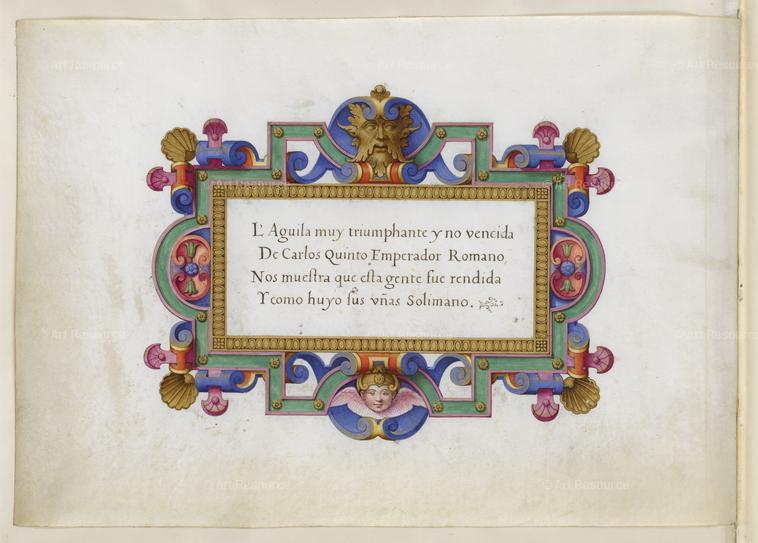 L'Aguila muy triumphante y no vencida
De Carlos Quinto Emperador Romano,
Nos mueſtra que eſta gente fue rendida
Y como huyo ſus vñas Solimano.
© Art Resource
© Art Resource
© Art Resource
© Art Resource
© Art Resource
© Art Resource
© Art Resource
© Art Resource